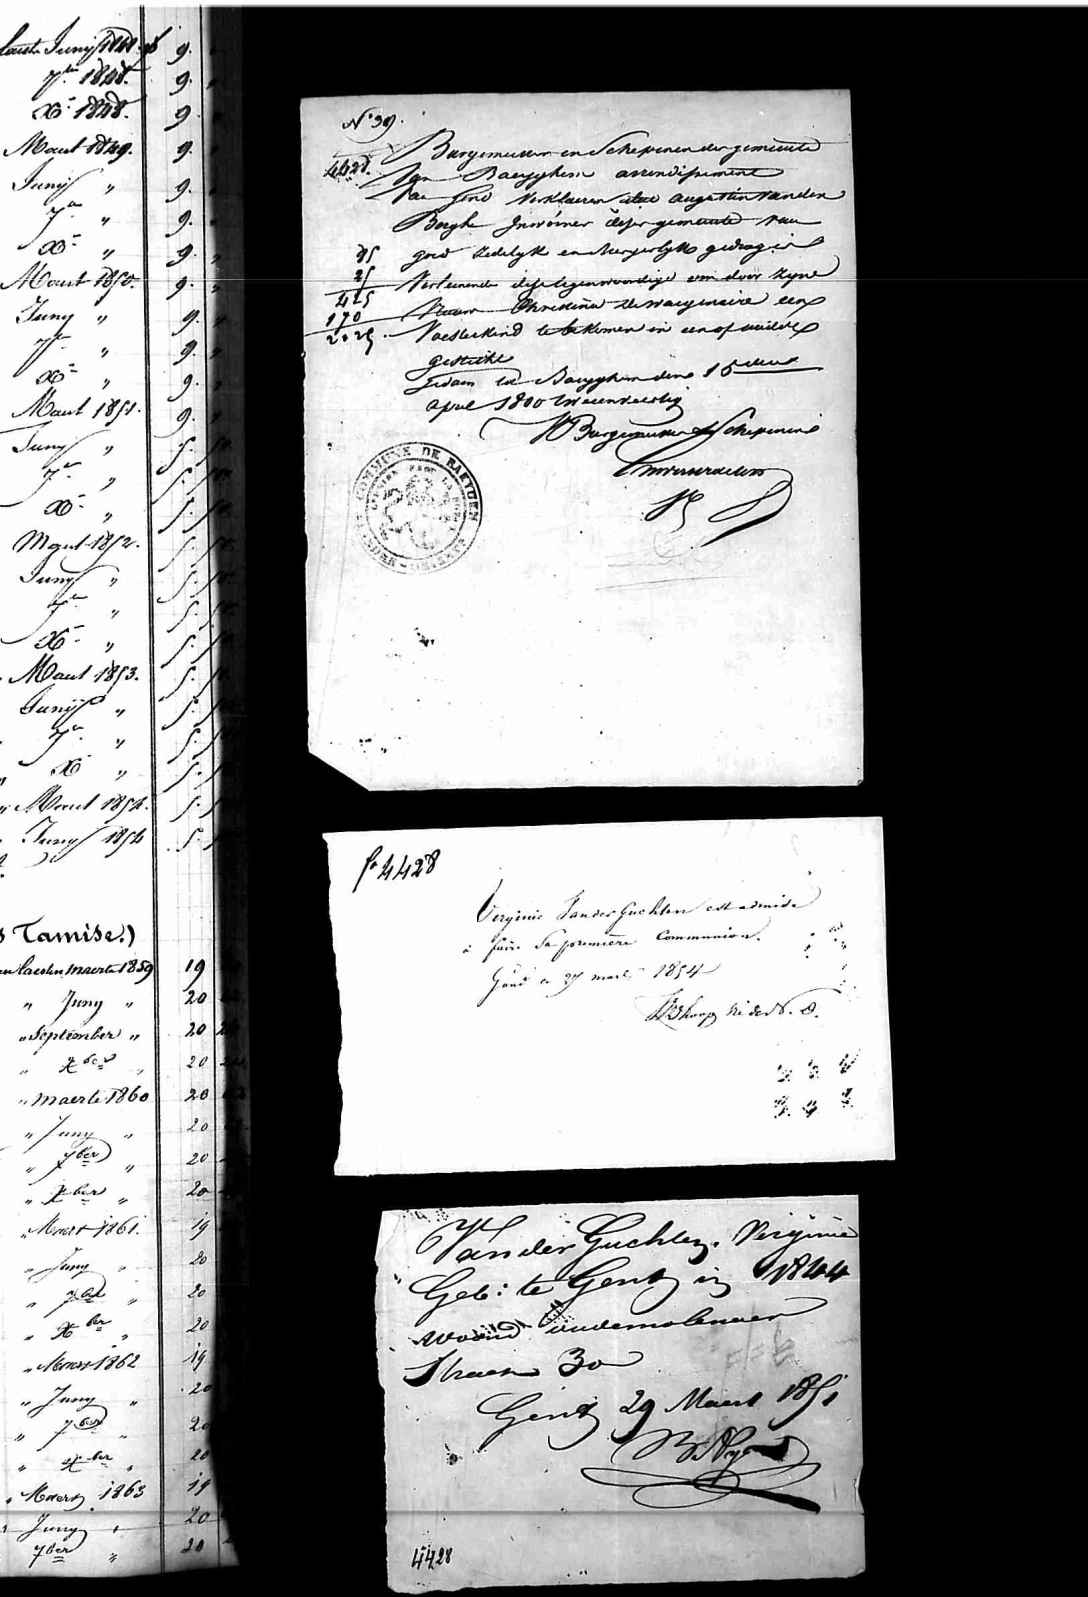 Juny 1848
7er 1848. 9.
Xr 1848. 9.
Maert 1849. 9.
Juny " 9.
7er " 9.
Xr " 9.
Maert 1850. 9.
Juny " 9.
7er " 9.
Xr " 9.
Maert 1851. 9.
Juny " 5.
7er " 5.
Xr " 5.
Maert 1852. 5.
Juny " 5.
7er " 5.
Xr " 5.
Maert 1853. 5.
Juny " 5.
7er " 5.
Xr " 5.
" Maert 1854. 5.
Juny 1854 5.
Tamise.)
laesten maerte 1859 19
" Juny " 20
" September " 20
" Xber " 20
" maerte 1860 20
" Juny " 20
" 7ber " 20
" Xber " 20
" Maert 1861. 19
" Juny " 20
" 7ber " 20
" Xber " 20
" Maert 1862 19
" Juny " 20
" 7ber " 20
" Xber " 20
" Maert 1863 19
" Juny " 20
7ber " 20
No 39.
4428.
Burgemeester en Schepenen der gemeente
van Baeyghem arrondissement
van Gend Verklaeren dat augustin vanden
Berghe Inwoner deser gemeente van
goed zedelyk en borgerlyk gedrag is
Verleenende dese tegenwoordige om door zyne
Vrouw Christina De waegenaire een
Voesterkind te bekomen in een of ander
gesticht
Gedaen te Baeyghem den 15
april 1800 vierenveertig
Burgemeester Schepenen
25
425
170
COMMUNE DE BAEYGEM
fo 4428
Virginie Vander Guchten est admise
à faire Sa première Communion.
Gand ce 27 mars 1854
Vander Guchten, Virginie
Geb: te Gent in 1844
woond oudemolenaer
Straet 30
Gent 29 Maert 1851
4428